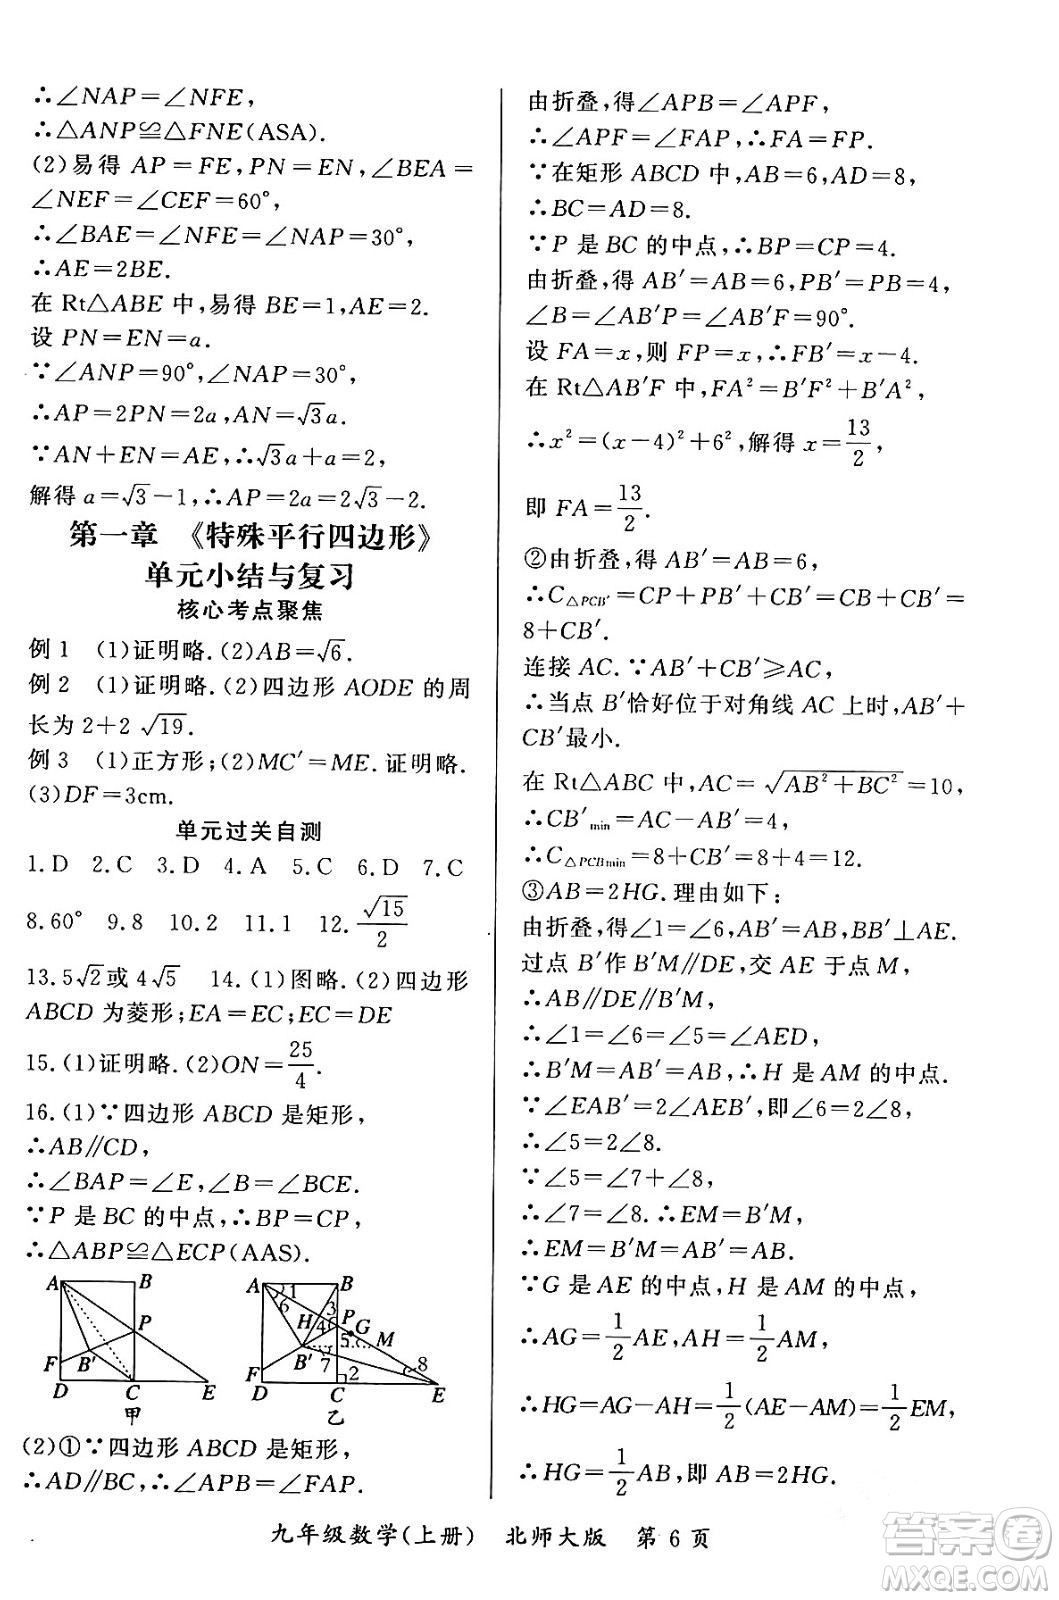 ∴∠NAP=∠NFE,
∴△ANP≌△FNE(ASA).
(2)易得 AP=FE,PN=EN,∠BEA=
∠NEF=∠CEF=60°,
∴∠BAE=∠NFE=∠NAP=30°,
∴AE=2BE.
在 Rt△ABE 中,易得 BE=1,AE=2.
设 PN=EN=a.
∵∠ANP=90°,∠NAP=30°,
∴AP=2PN=2a,AN=√3a.
∵AN+EN=AE,∴√3a+a=2,
解得 a=√3-1,∴AP=2a=2√3-2.
第一章 《特殊平行四边形》
单元小结与复习
核心考点聚焦
例 1 (1)证明略.(2)AB=√6.
例 2 (1)证明略.(2)四边形 AODE 的周
长为 2+2√19.
例 3 (1)正方形;(2)MC′=ME.证明略.
(3)DF=3cm.
单元过关自测
1.D 2.C 3.D 4.A 5.C 6.D 7.C
8.60° 9.8 10.2 11.1 12.√15/2
13.5√2或 4√5 14.(1)图略.(2)四边形
ABCD 为菱形;EA=EC;EC=DE
15.(1)证明略.(2)ON=25/4.
16.(1)∵四边形 ABCD 是矩形,
∴AB∥CD,
∴∠BAP=∠E,∠B=∠BCE.
∵P 是 BC 的中点,∴BP=CP,
∴△ABP≌△ECP(AAS).
A B P F B′ D C E
甲
A B 1 6 3 H 4 P G 5 M B′ 7 8 F 2 D C E
乙
(2)①∵四边形 ABCD 是矩形,
∴AD∥BC,∴∠APB=∠FAP.
由折叠,得∠APB=∠APF,
∴∠APF=∠FAP,∴FA=FP.
∵在矩形 ABCD 中,AB=6,AD=8,
∴BC=AD=8.
∵P 是 BC 的中点,∴BP=CP=4.
由折叠,得 AB′=AB=6,PB′=PB=4,
∠B=∠AB′P=∠AB′F=90°.
设 FA=x,则 FP=x,∴FB′=x-4.
在 Rt△AB′F 中,FA²=B′F²+B′A²,
∴x²=(x-4)²+6²,解得 x=13/2,
即 FA=13/2.
②由折叠,得 AB′=AB=6,PB′=PB=4,
∴C△PCB′=CP+PB′+CB′=CB+CB′=
8+CB′.
连接 AC.∵AB′+CB′≥AC,
∴当点 B′恰好位于对角线 AC 上时,AB′+
CB′最小.
在 Rt△ABC 中,AC=√(AB²+BC²)=10,
∴CB′min=AC-AB′=4,
∴C△PCBmin=8+CB′=8+4=12.
③AB=2HG.理由如下:
由折叠,得∠1=∠6,AB′=AB,BB′⊥AE.
过点 B′作 B′M∥DE,交 AE 于点 M,
∴AB∥DE∥B′M,
∴∠1=∠6=∠5=∠AED,
∴B′M=AB′=AB,∴H 是 AM 的中点.
∵∠EAB′=2∠AEB′,即∠6=2∠8,
∴∠5=2∠8.
∵∠5=∠7+∠8,
∴∠7=∠8.∴EM=B′M,
∴EM=B′M=AB′=AB.
∵G 是 AE 的中点,H 是 AM 的中点,
∴AG=1/2AE,AH=1/2AM,
∴HG=AG-AH=1/2(AE-AM)=1/2EM,
∴HG=1/2AB,即 AB=2HG.
九年级数学(上册) 北师大版 第 6 页
答案圈
MXQE.COM